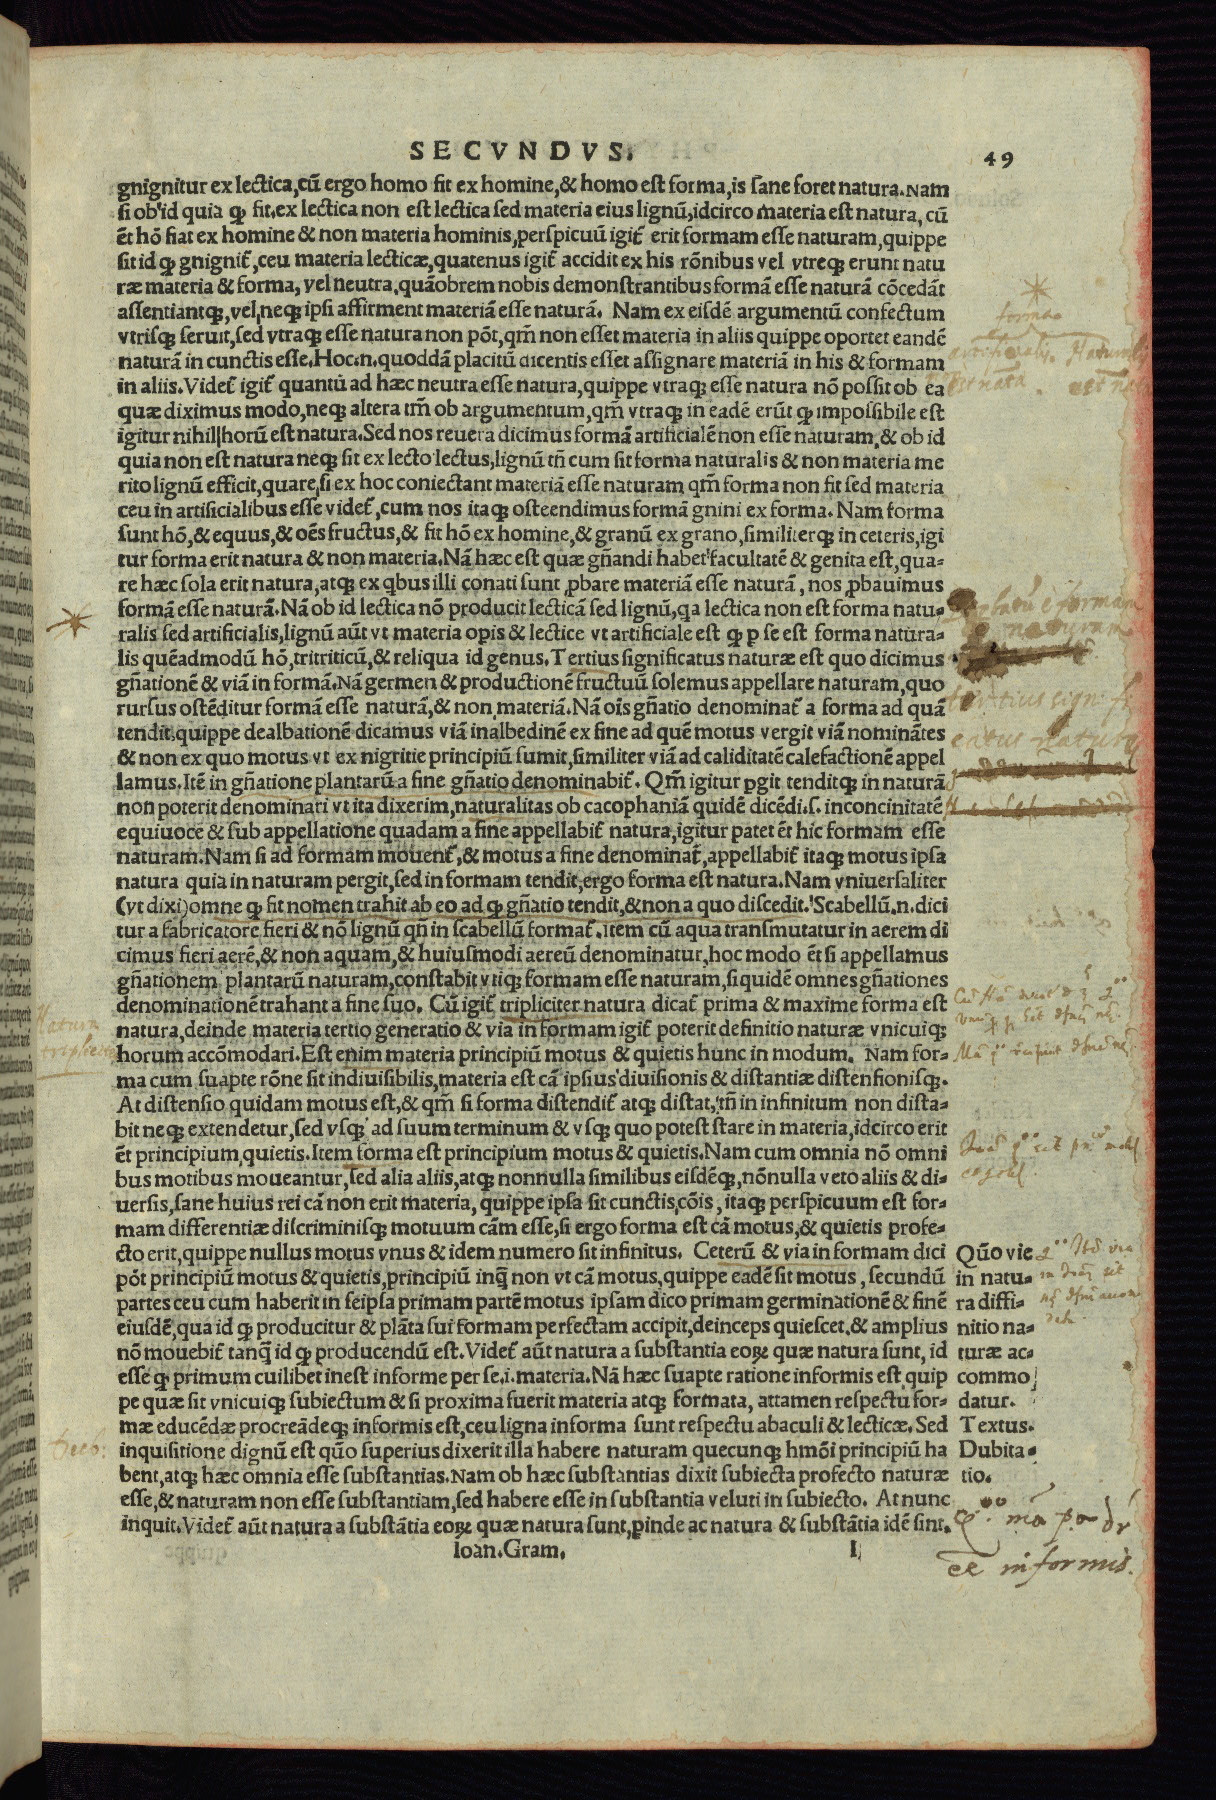 SECVNDVS.
49
gnignitur ex lectica,cũ ergo homo fit ex homine,& homo est forma,is sane foret natura.Nam
si ob'id quia ꝙ fit.ex lectica non est lectica sed materia eius lignũ,idcirco materia est natura, cũ
ẽt hõ fiat ex homine & non materia hominis,perspicuũ igit̃ erit formam esse naturam,quippe
sit id ꝙ gnignit̃,ceu materia lecticæ,quatenus igit̃ accidit ex his rõnibus vel vtreqꝫ erunt natu
ræ materia & forma, vel neutra,quãobrem nobis demonstrantibus formã esse naturã cõcedãt
assentiantqꝫ,vel,neqꝫ ipsi affirment materiã esse naturã. Nam ex eisdẽ argumentũ confectum
vtrisqꝫ seruit,sed vtraqꝫ esse natura non põt,qm̃ non esset materia in aliis quippe oportet eandẽ
naturã in cunctis esse.Hoc.n.quoddã placitũ dicentis esset assignare materiã in his & formam
in aliis.Videt̃ igit̃ quantũ ad hæc neutra esse natura,quippe vtraqꝫ esse natura nõ possit ob ea
quæ diximus modo,neqꝫ altera tm̃ ob argumentum,qm̃ vtraqꝫ in eadẽ erũt ꝙ impossibile est
igitur nihil horũ est natura.Sed nos reuera dicimus formã artificialẽ non esse naturam,& ob id
quia non est natura neqꝫ fit ex lecto lectus,lignũ tñ cum sit forma naturalis & non materia me
rito lignũ efficit,quare,si ex hoc coniectant materiã esse naturam qm̃ forma non fit sed materia
ceu in artificialibus esse videt̃,cum nos itaqꝫ osteendimus formã gnini ex forma. Nam forma
sunt hõ,& equus,& oẽs fructus,& fit hõ ex homine,& granũ ex grano,similiterqꝫ in ceteris,igi
tur forma erit natura & non materia.Nã hæc est quæ gñandi habet facultatẽ & genita est,qua-
re hæc sola erit natura,atqꝫ ex qbus illi conati sunt ꝓbare materiã esse naturã, nos ꝓbauimus
formã esse naturã.Nã ob id lectica nõ producit lecticã sed lignũ,qa lectica non est forma natu-
ralis sed artificialis,lignũ aũt vt materia opis & lectice vt artificiale est ꝙ ꝑ se est forma natura-
lis quẽadmodũ hõ,tritriticũ,& reliqua id genus.Tertius significatus naturæ est quo dicimus
gñationẽ & viã in formã.Nã germen & productionẽ fructuũ solemus appellare naturam,quo
rursus ostẽditur formã esse naturã,& non materiã.Nã oĩs gñatio denominat̃ a forma ad quã
tendit.quippe dealbationẽ dicamus viã in albedinẽ ex fine ad quẽ motus vergit viã nominãtes
& non ex quo motus vt ex nigritie principiũ sumit,similiter viã ad caliditatẽ calefactionẽ appel
lamus.Itẽ in gñatione plantarũ a fine gñatio denominabit̃. Qm̃ igitur ꝑgit tenditqꝫ in naturã
non poterit denominari vt ita dixerim,naturalitas ob cacophaniã quidẽ dicẽdi.ſ. inconcinitatẽ
equiuoce & sub appellatione quadam a fine appellabit̃ natura,igitur patet ẽt hic formam esse
naturam.Nam si ad formam mouent̃,& motus a fine denominat̃,appellabit̃ itaqꝫ motus ipsa
natura quia in naturam pergit,sed in formam tendit,ergo forma est natura.Nam vniuersaliter
(vt dixi)omne ꝙ fit nomen trahit ab eo ad ꝙ gñatio tendit,& non a quo discedit.Scabellũ.n.dici
tur a fabricatore fieri & nõ lignũ qñ in scabellũ format̃.Item cũ aqua transmutatur in aerem di
cimus fieri aerẽ,& non aquam,& huiusmodi aereũ denominatur.hoc modo ẽt si appellamus
gñationem plantarũ naturam,constabit vtiqꝫ formam esse naturam,siquidẽ omnes gñationes
denominationẽ trahant a fine suo. Cũ igit̃ tripliciter natura dicat̃ prima & maxime forma est
natura,deinde materia tertio generatio & via in formam igit̃ poterit definitio naturæ vnicuiqꝫ
horum accõmodari.Est enim materia principiũ motus & quietis hunc in modum. Nam for-
ma cum suapte rõne sit indiuisibilis,materia est cã ipsius diuisionis & distantiæ distensionisqꝫ.
At distensio quidam motus est,& qm̃ si forma distendit̃ atqꝫ distat,tñ in infinitum non dista-
bit neqꝫ extendetur,sed vsqꝫ ad suum terminum & vsqꝫ quo potest stare in materia,idcirco erit
ẽt principium,quietis.Item forma est principium motus & quietis.Nam cum omnia nõ omni
bus motibus moueantur,sed alia aliis,atqꝫ nonnulla similibus eisdẽqꝫ,nõnulla veto aliis & di-
uersis,sane huius rei cã non erit materia, quippe ipsa sit cunctis,cõis, itaqꝫ perspicuum est for-
mam differentiæ discriminisqꝫ motuum cãm esse,si ergo forma est cã motus,& quietis profe-
cto erit,quippe nullus motus vnus & idem numero sit infinitus. Ceterũ & via in formam dici
põt principiũ motus & quietis,principiũ inq̃ non vt cã motus,quippe eadẽ sit motus, secundũ
partes ceu cum haberit in seipsa primam partẽ motus ipsam dico primam germinationẽ & finẽ
eiusdẽ,qua id ꝙ producitur & plãta sui formam perfectam accipit,deinceps quiescet.& amplius
nõ mouebit̃ tanq̃ id ꝙ producendũ est.Videt̃ aũt natura a substantia eoꝝ quæ natura sunt, id
esse ꝙ primum cuilibet inest informe per se.i.materia.Nã hæc suapte ratione informis est,quip
pe quæ sit vnicuiqꝫ subiectum & si proxima fuerit materia atqꝫ formata, attamen respectu for-
mæ educẽdæ procreãdeqꝫ informis est,ceu ligna informa sunt respectu abaculi & lecticæ.Sed
inquisitione dignũ est quõ superius dixerit illa habere naturam quecunqꝫ hmõi principiũ ha
bent,atqꝫ hæc omnia esse substantias.Nam ob hæc substantias dixit subiecta profecto naturæ
esse,& naturam non esse substantiam,sed habere esse in substantia veluti in subiecto. At nunc
inquit.Videt̃ aũt natura a substãtia eoꝝ quæ natura sunt,ꝑinde ac natura & substãtia idẽ sint.
Ioan.Gram.
I
Quõ vie
in natu-
ra diffi-
nitio na-
turæ ac-
commo
datur.
Textus.
Dubita-
tio.
formae
artificialis. Naturalis
tertius signifi
catus naturae
Natura
tripliciter
informis.